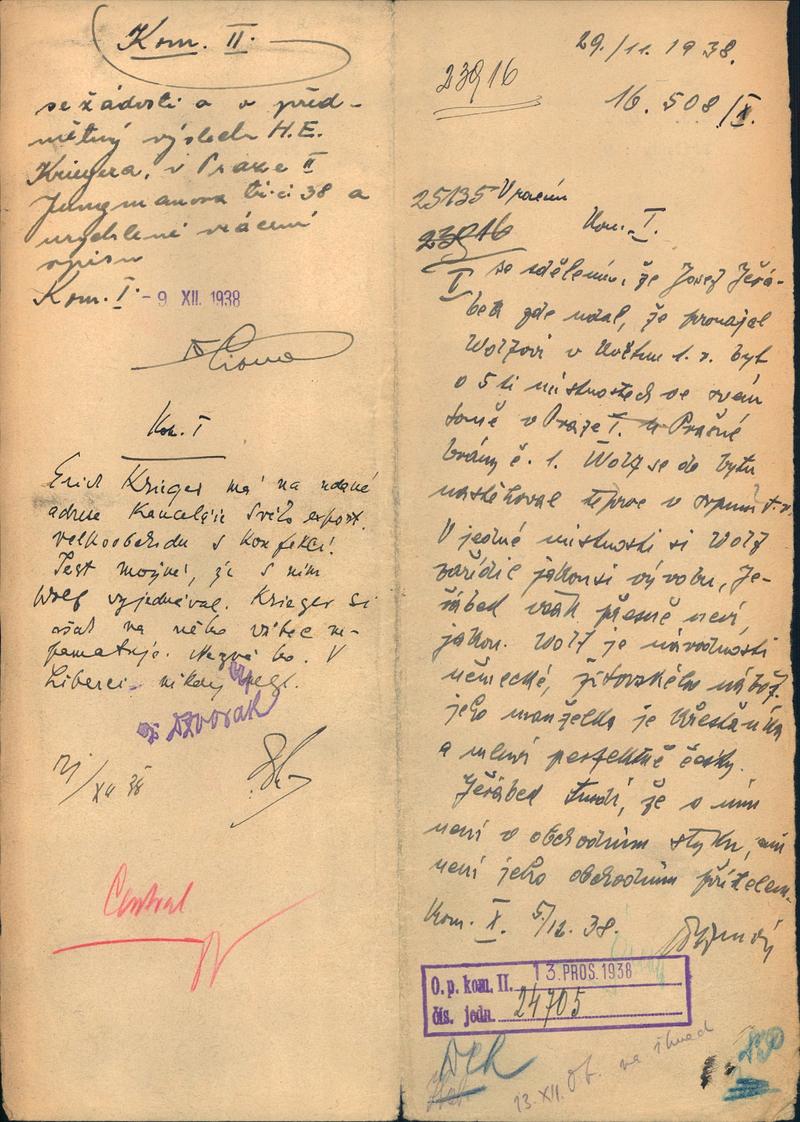 Kom. II.
se žádostí o před-
mětný výslech H.E.
Kriegra, v Praze II
Jungmanova třída 38 a
urychlené vrácení
spisu
Kom. I. - 9 XII. 1938
Kom. I
Erich Krieger má na udané
adrese kanceláře
velkoobchodu s konfekcí.
Jest možné, že s ním
Wolf vyjednával. Krieger si
však na něho vůbec ne-
pamatuje. Nezve ho. V
Liberci nikdy nebyl.
Dvorak
XII 38
Central
29./11. 1938.
23916
16.508/X.
25135 Vracím
23916 Kom. I.
I se sdělením, že Josef Jeřá-
bek zde udal, že pronajal
Wolfovi v květnu t. r. byt
o 5ti místnostech ve svém
domě v Praze I. u Prašné
brány č. 1. Wolf se do bytu
nastěhoval teprve v srpnu t. r.
V jedné místnosti si Wolf
zařídil jakousi výrobu, Je-
řábek však přesně neví,
jakou. Wolf je národnosti
německé, židovského nábož.
jeho manželka je křesťanka
a mluví perfektně česky.
Jeřábek tvrdí, že s ním
není v obchodním styku, ani
není jeho obchodním přítelem.
Kom. X. 5/12. 38.
O. p. kom. II. 13. PROS. 1938
čís. jedn. 24705
13. XII.